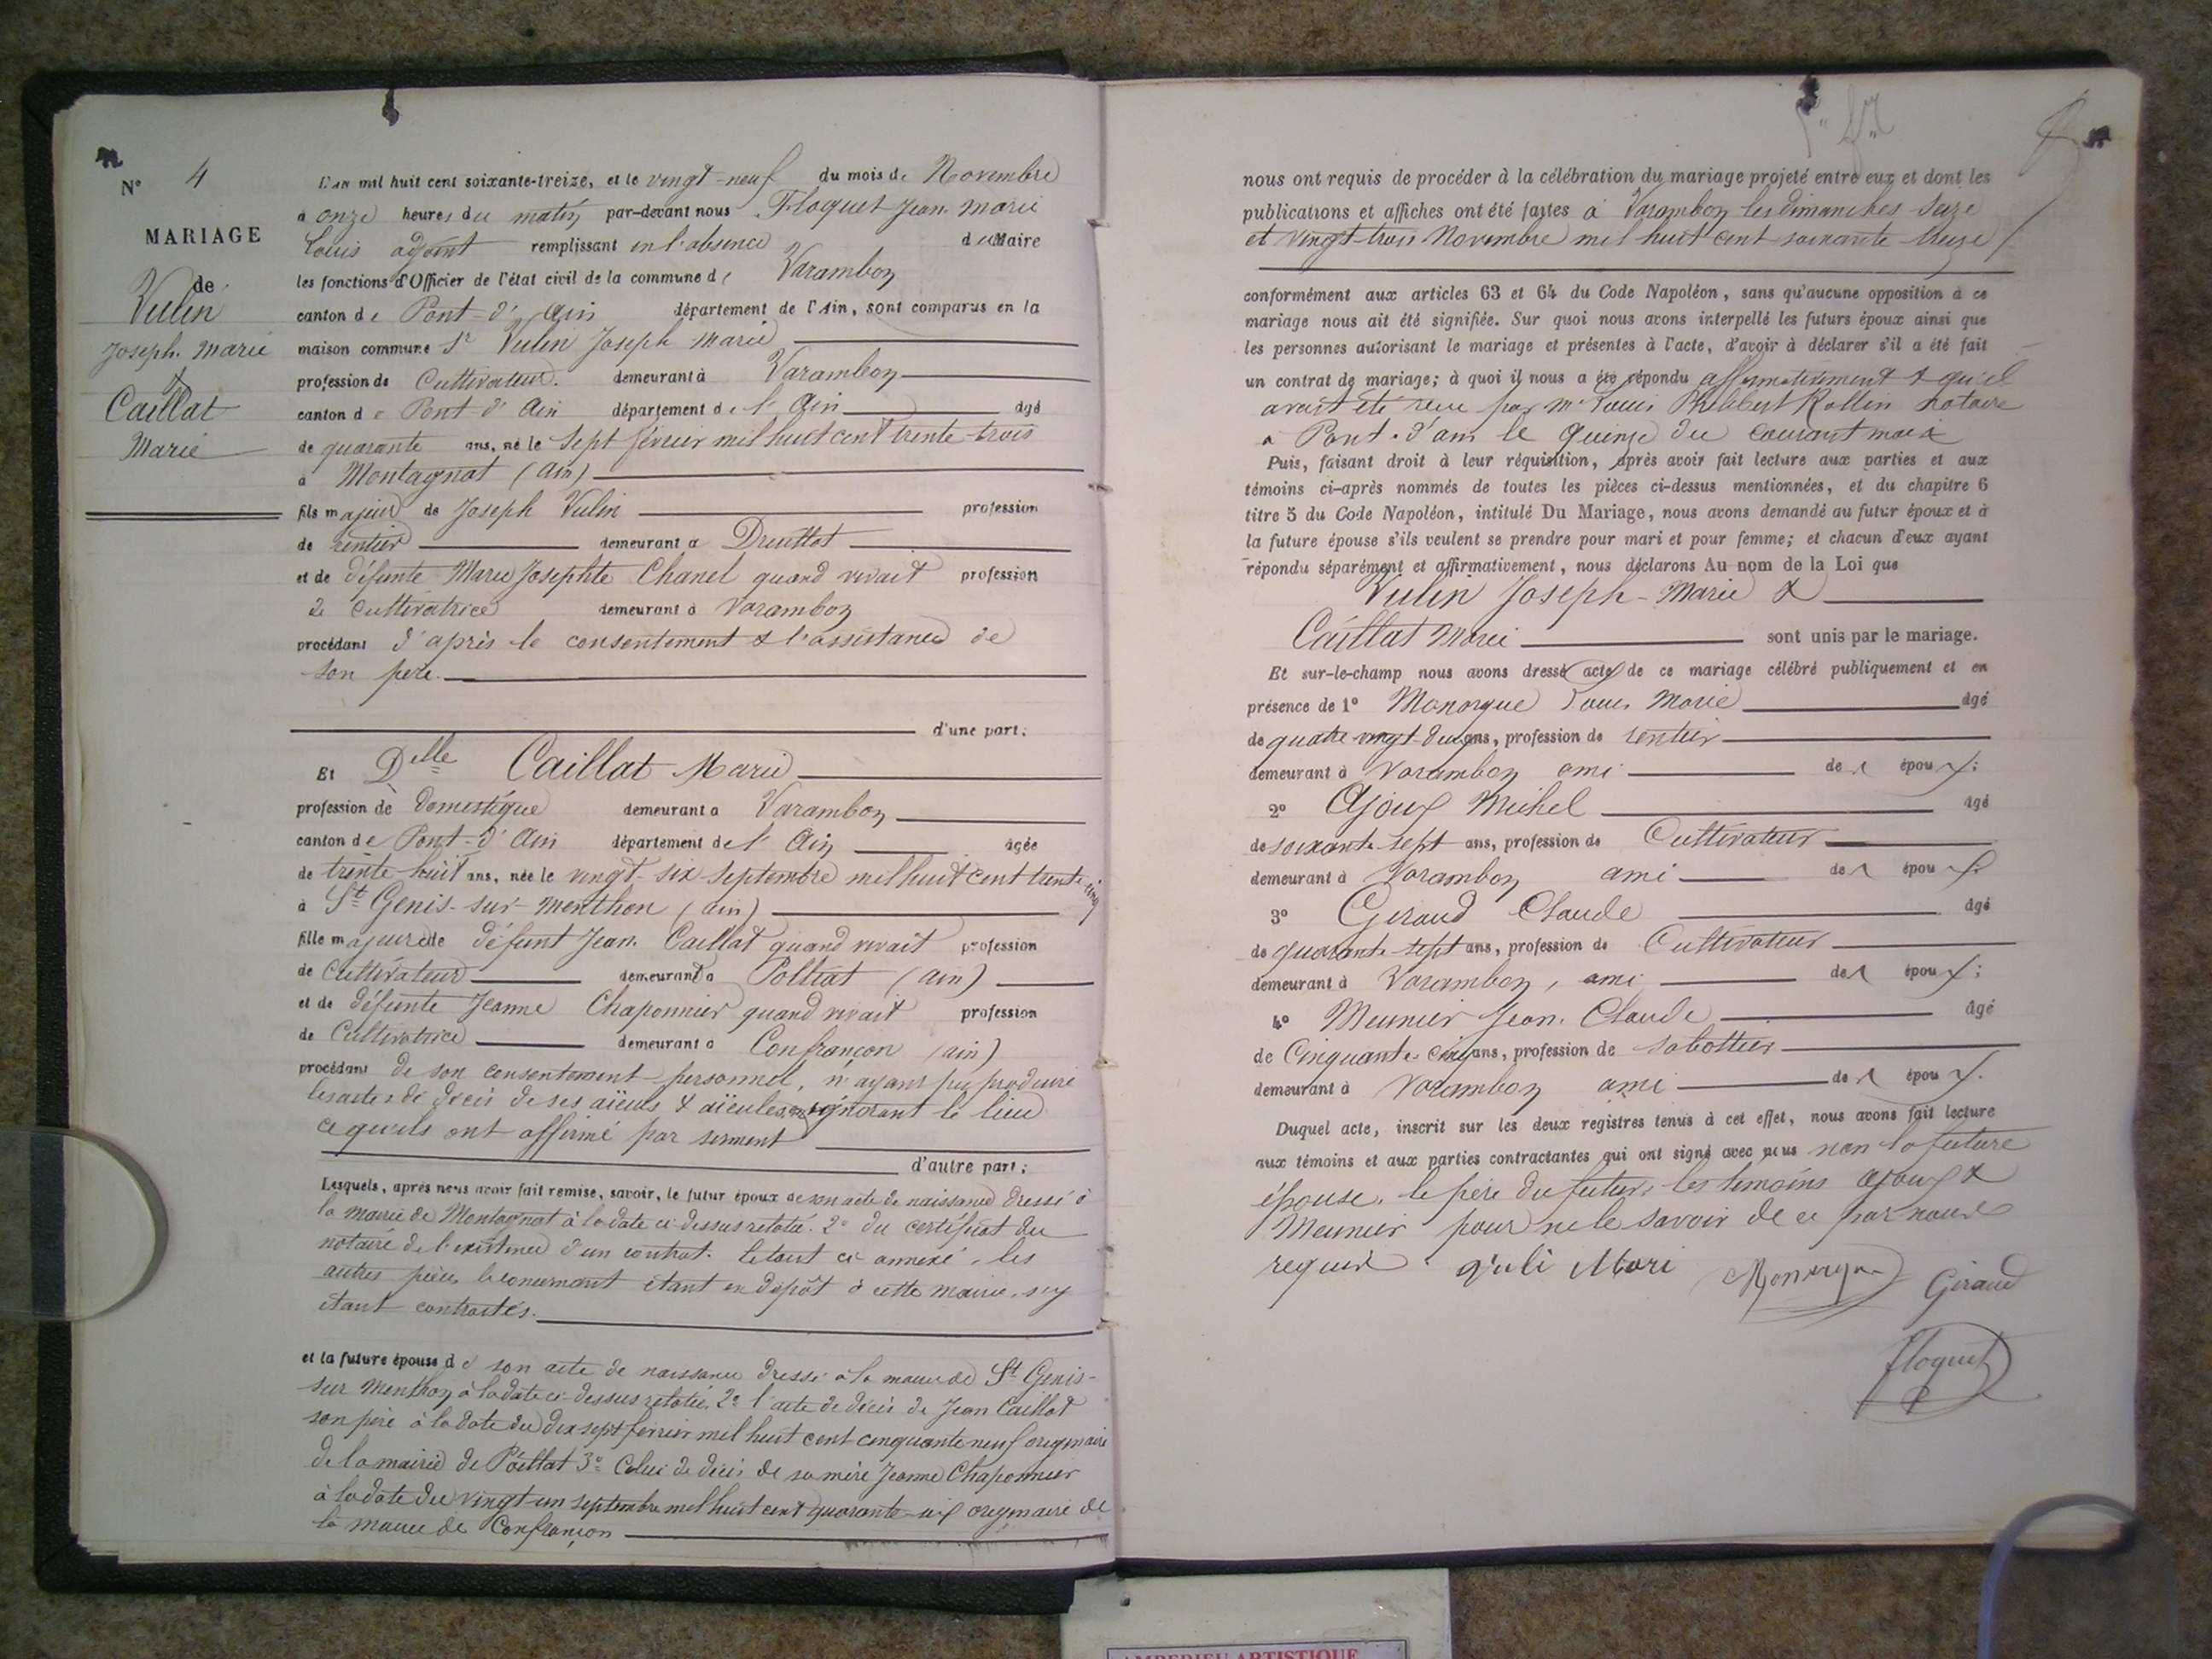 N° 4
MARIAGE
de
Vulin
Joseph. Marie
&
Caillat
Marie
L'an mil huit cent soixante-treize, et le vingt-neuf du mois de Novembre
à onze heures du matin par-devant nous Floquet Jean Marie
Louis adjoint remplissant en l'absence du Maire
les fonctions d'Officier de l'état civil de la commune de Varambon
canton de Pont-d'Ain département de l'Ain, sont comparus en la
maison commune Sr Vulin Joseph Marie
profession de Cultivateur. demeurant à Varambon
canton de Pont-d'Ain département de l'Ain âgé
de quarante ans, né le sept février mil huit cent trente-trois
à Montagnat (Ain)
fils majeur de Joseph Vulin profession
de rentier demeurant à Druillat
et de défunte Marie Josephte Chanel quand vivait profession
de cultivatrice demeurant à Varambon
procédant d'après le consentement & l'assistance de
son père.
d'une part;
Et Delle Caillat Marie
profession de domestique demeurant à Varambon
canton de Pont-d'Ain département de l'Ain âgée
de trente-huit ans, née le vingt-six septembre mil huit cent trente-cinq
à St Genis-sur-Menthon (ain)
fille majeure de défunt Jean Caillat quand vivait profession
de Cultivateur demeurant à Polliat (ain)
et de défunte Jeanne Chaponnier quand vivait profession
de Cultivatrice demeurant à Confrançon (ain)
procédant de son consentement personnel, n'ayant pu produire
les actes de décès de ses aïeuls & aïeules, en ignorant le lieu
ce qu'ils ont affirmé par serment
d'autre part;
Lesquels, après nous avoir fait remise, savoir, le futur époux de son acte de naissance dressé à
la mairie de Montagnat à la date ci-dessus relatée. 2° du certificat du
notaire de l'existence d'un contrat. le tout ci annexé, les
autres pièces le concernant étant en dépôt à cette mairie, s'y
étant contractés.
et la future épouse de son acte de naissance dressé à la mairie de St Genis-
sur Menthon à la date ci-dessus relatée. 2° l'acte de décès de Jean Caillat
son père à la date du dix-sept février mil huit cent cinquante neuf originaire
de la mairie de Polliat 3° Celui de décès de sa mère Jeanne Chaponnier
à la date du vingt-un septembre mil huit cent quarante-six originaire de
la mairie de Confrançon
nous ont requis de procéder à la célébration du mariage projeté entre eux et dont les
publications et affiches ont été faites à Varambon les dimanches seize
et vingt-trois Novembre mil huit cent soixante treize
conformément aux articles 63 et 64 du Code Napoléon, sans qu'aucune opposition à ce
mariage nous ait été signifiée. Sur quoi nous avons interpellé les futurs époux ainsi que
les personnes autorisant le mariage et présentes à l'acte, d'avoir à déclarer s'il a été fait
un contrat de mariage; à quoi il nous a été répondu affirmativement & qu'il
avait été reçu par Me Louis Philibert Rollin notaire
à Pont-d'ain le quinze du courant mois
Puis, faisant droit à leur réquisition, après avoir fait lecture aux parties et aux
témoins ci-après nommés de toutes les pièces ci-dessus mentionnées, et du chapitre 6
titre 5 du Code Napoléon, intitulé Du Mariage, nous avons demandé au futur époux et à
la future épouse s'ils veulent se prendre pour mari et pour femme; et chacun d'eux ayant
répondu séparément et affirmativement, nous déclarons Au nom de la Loi que
Vulin Joseph-Marie &
Caillat Marie sont unis par le mariage.
Et sur-le-champ nous avons dressé acte de ce mariage célébré publiquement et en
présence de 1° Monarque Louis Marie âgé
de quatre vingt deux ans, profession de rentier
demeurant à Varambon ami des époux;
2° Ajoux Michel âgé
de soixante sept ans, profession de Cultivateur
demeurant à Varambon ami des époux;
3° Giraud Claude âgé
de quarante-sept ans, profession de Cultivateur
demeurant à Varambon, ami des époux;
4° Meunier Jean. Claude âgé
de Cinquante-cinq ans, profession de sabottier
demeurant à Varambon ami des époux.
Duquel acte, inscrit sur les deux registres tenus à cet effet, nous avons fait lecture
aux témoins et aux parties contractantes qui ont signé avec nous non la future
épouse, le père du futur, les témoins Ajoux &
Meunier pour ne le savoir de ce par nous
requis
Monarque
Giraud
Floquet
AMBERIEU ARTISTIQUE